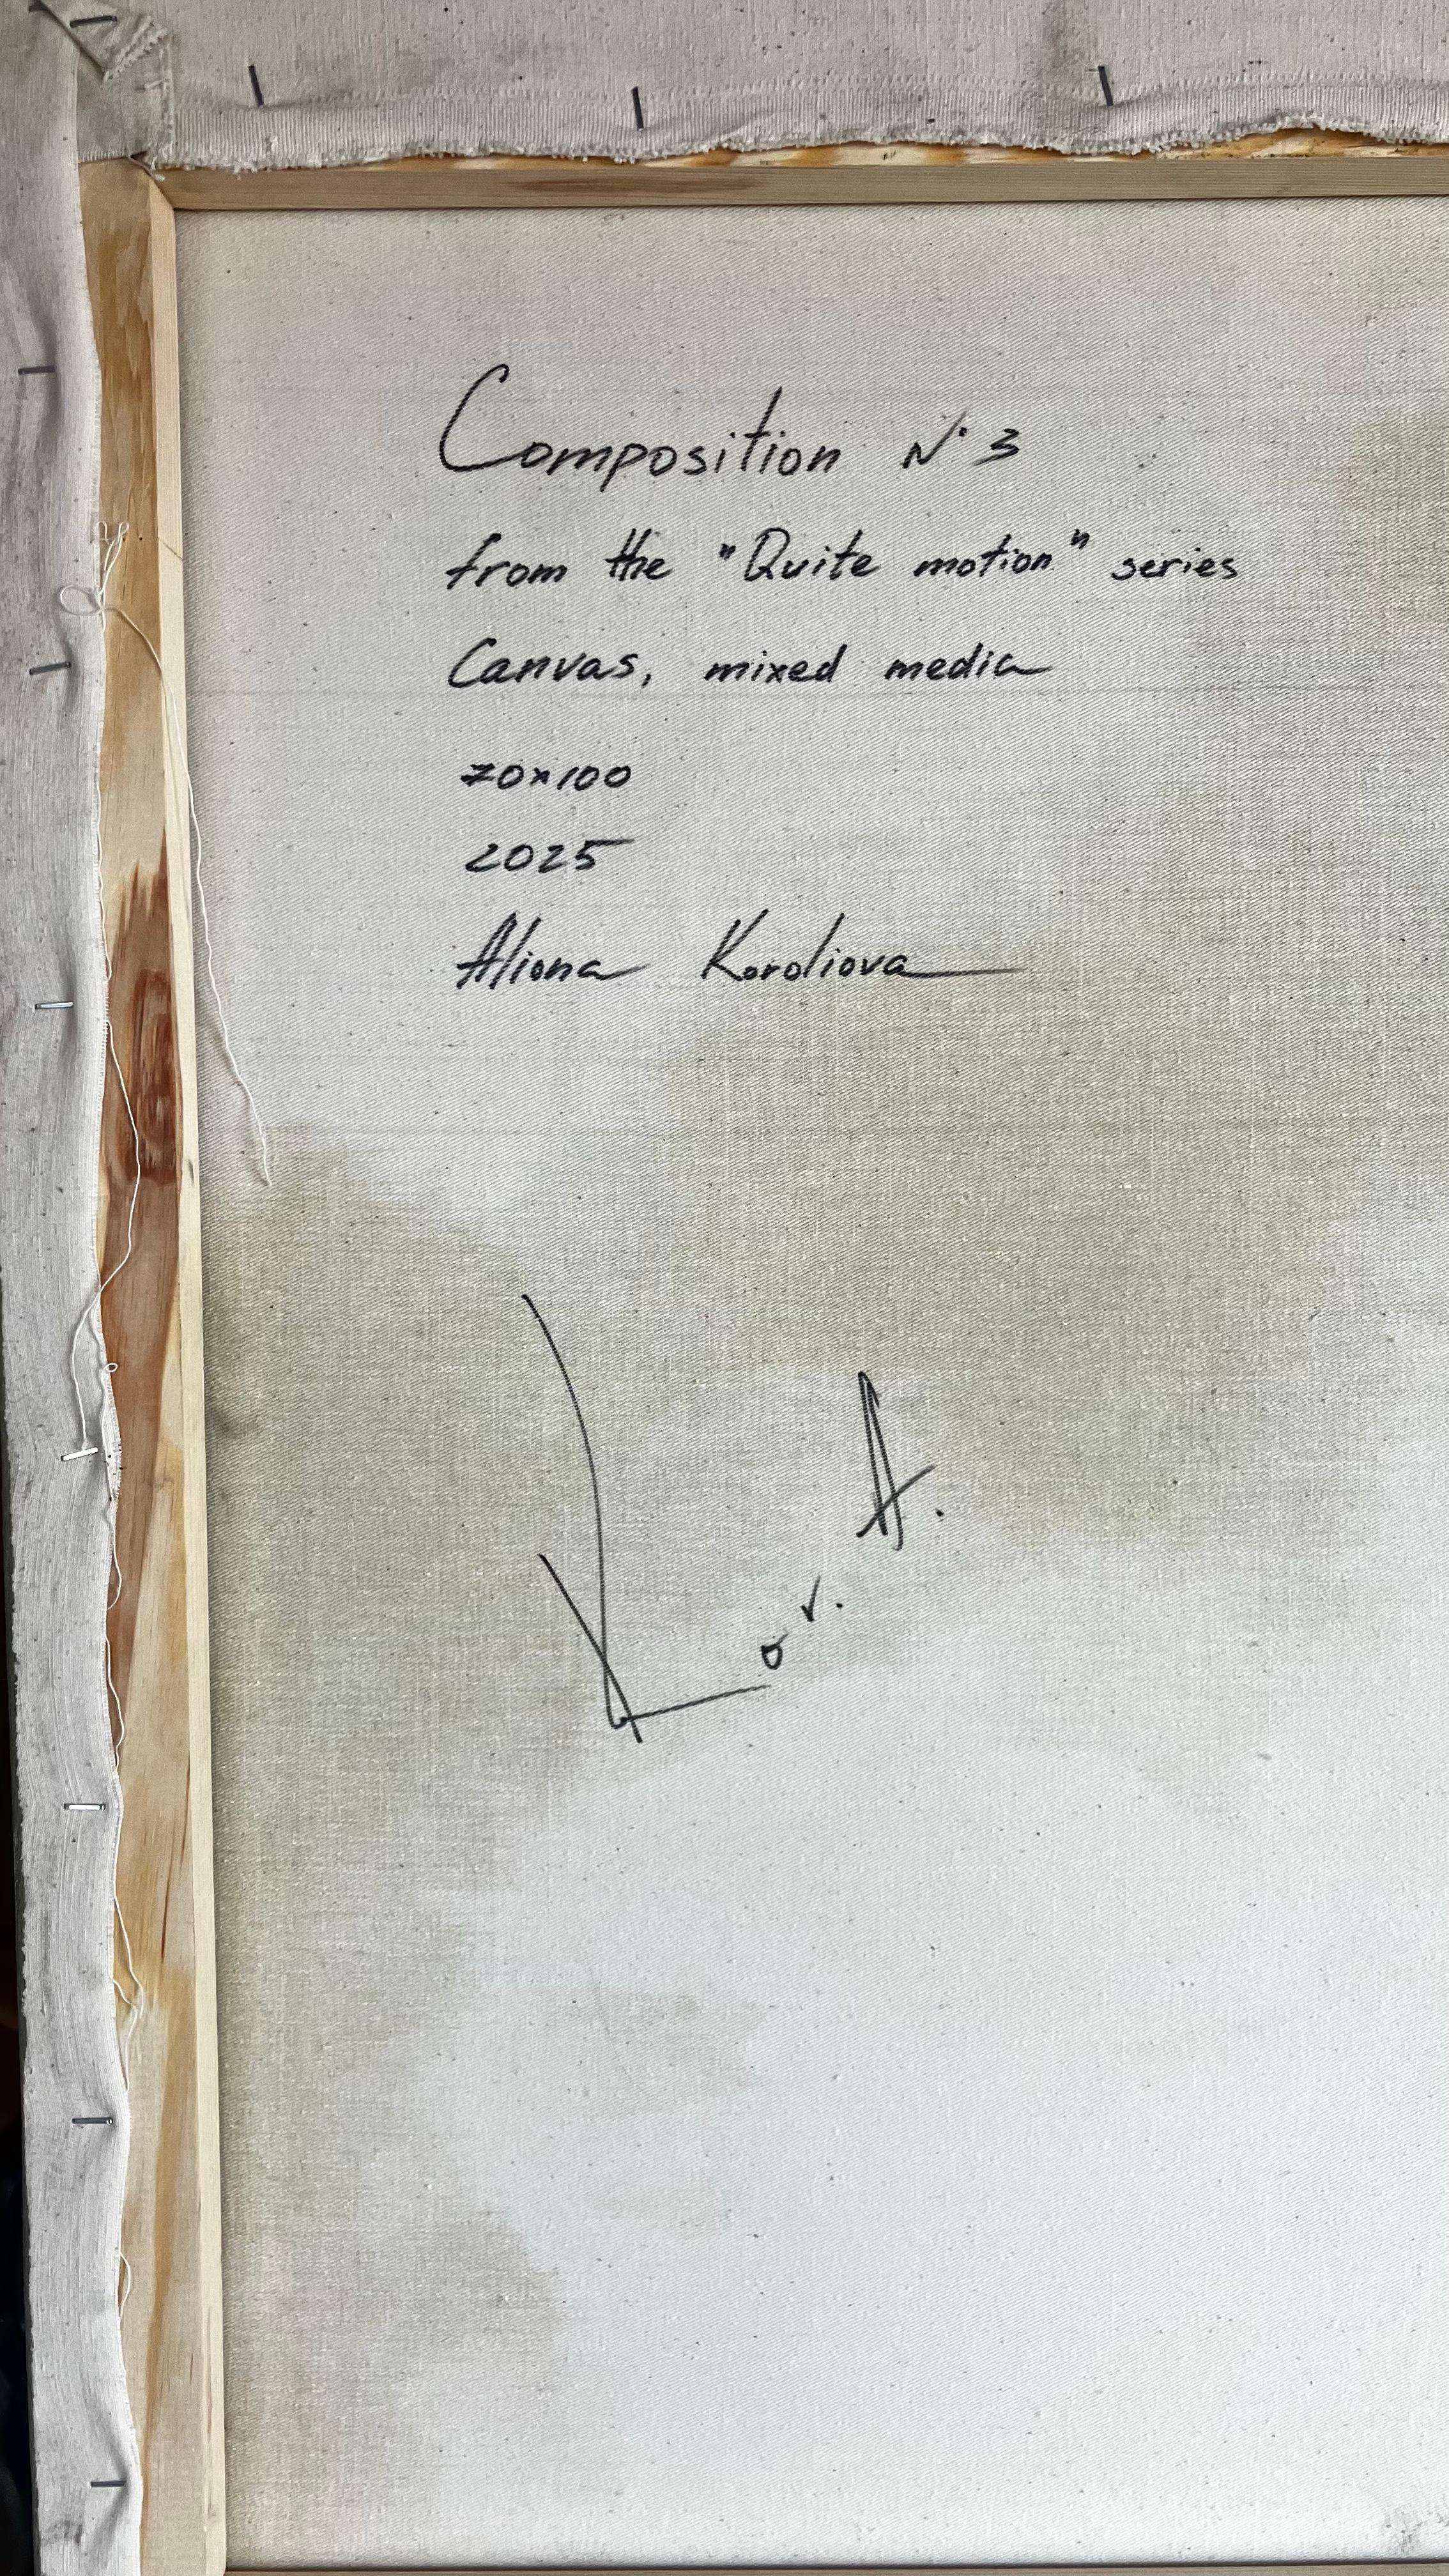 Composition N° 3
from the "Quite motion" series
Canvas, mixed media
70x100
2025
Aliona Koroliova
Kor. A.